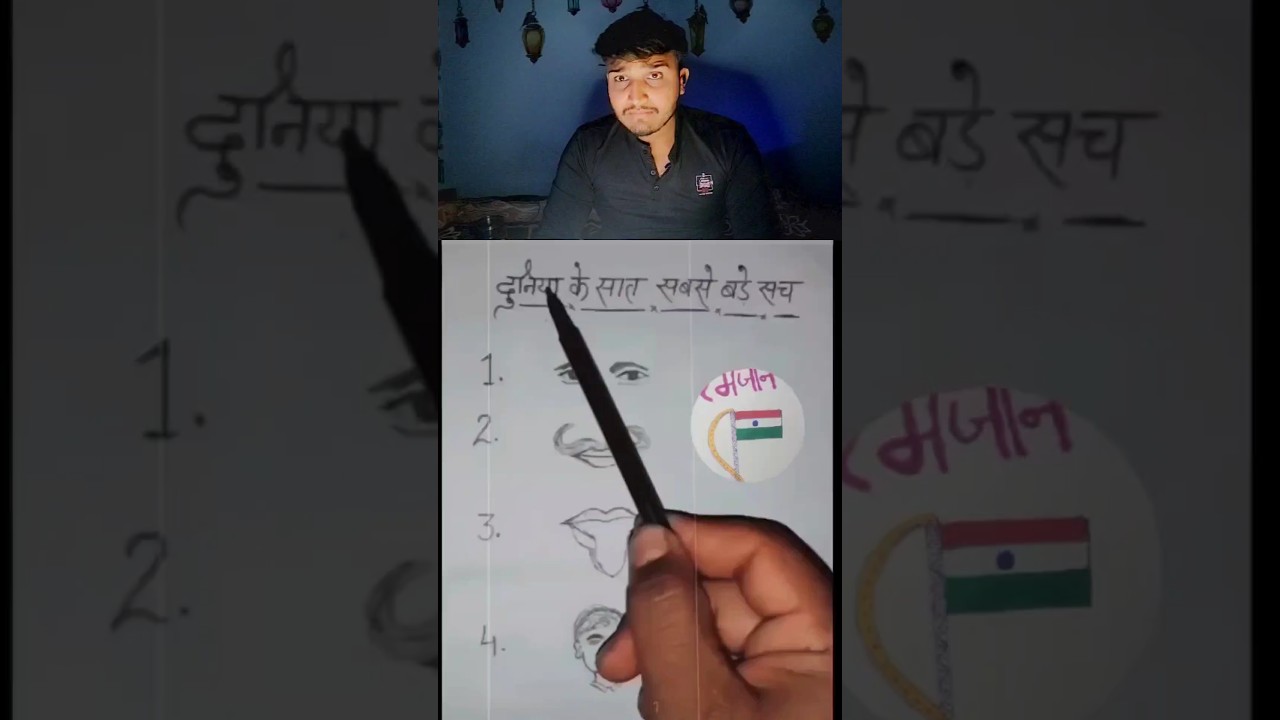 दुनिया के सात सबसे बड़े सच
1.
2.
3.
4.
रमजान